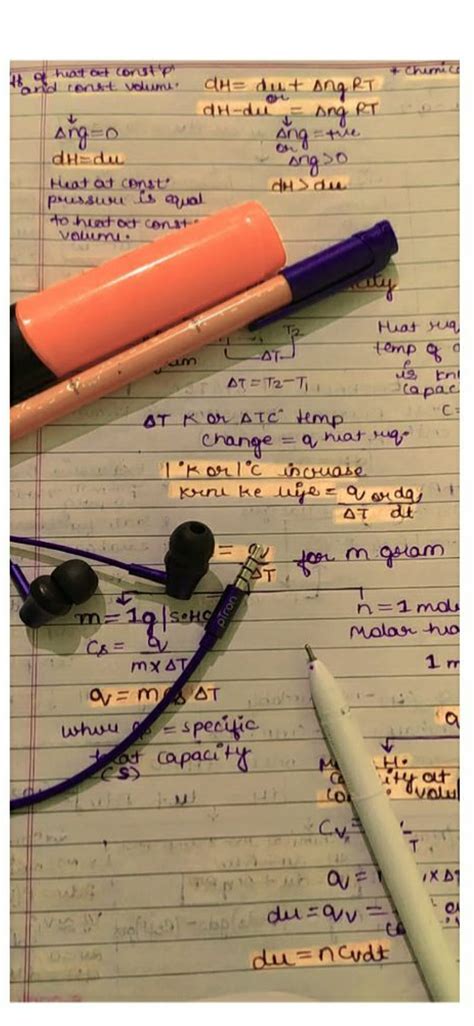 of heat at const p
and const volume.
dH = du + Δng RT
or
dH-du = Δng RT
Δng=0
dH=du
Heat at const.
pressure is equal
to heat at const.
volume.
Δng=+ve
or
Δng>0
dH>du
T2
ΔT
ΔT = T2-T1
Heat req
temp of
is
capac
C=
ΔT K or ΔT°C temp
change = q heat req.
1°K or 1°C increase
krni ke liye = q or dq
ΔT dt
= q
ΔT
for m gram
ptron
m = 1g
Cs = q
m×ΔT
q = m ΔT
where = specific
heat capacity
(s)
n = 1 mole
Molar hea
1 m
q
H.
at
volu
Cv =
T
q = × Δ
du = qv =
du = nCvdt